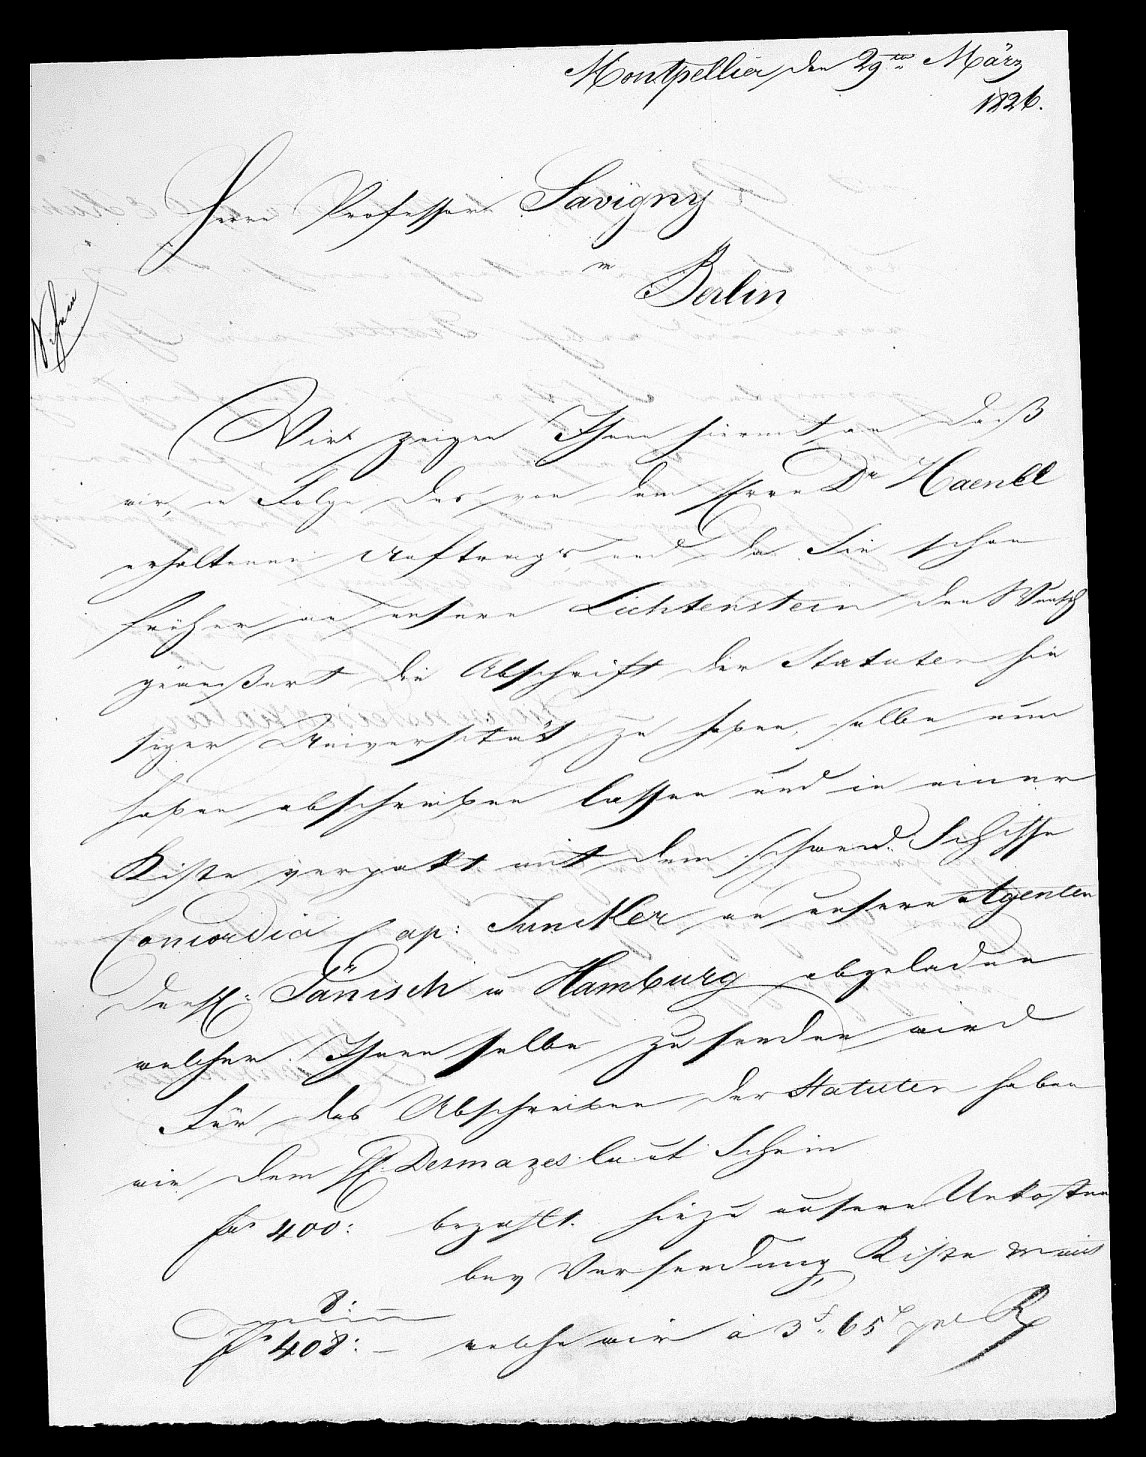 Montpellier den 29ten März
1826.
Herrn Professor Savigny
in
Berlin
Wir zeigen Ihnen hiermit an daß
wir, in Folge des von dem Herrn Dr Haenel
erhaltenen Auftrags und da Sie schon
früher an unsern Lichtenstein den Wunsch
geäußert die Abschrift der Statuten hie
siger Universität zu haben, selbe nun
haben abschreiben lassen und in einer
Kiste verpakt mit dem schwed. Schiffe
Concordia Cap: Junckler an unsern Agenten
den H: Jänisch in Hamburg abgeladen
welcher Ihnen selbe zu senden wird
Für das Abschreiben der Statuten haben
wir dem H. Desmazes laut Schein
frs 400: bezahlt. hiezu unsere Unkosten
bey Versendung, Kiste
8: —
Frs 408: — welche wir à 3f. 65c pr R